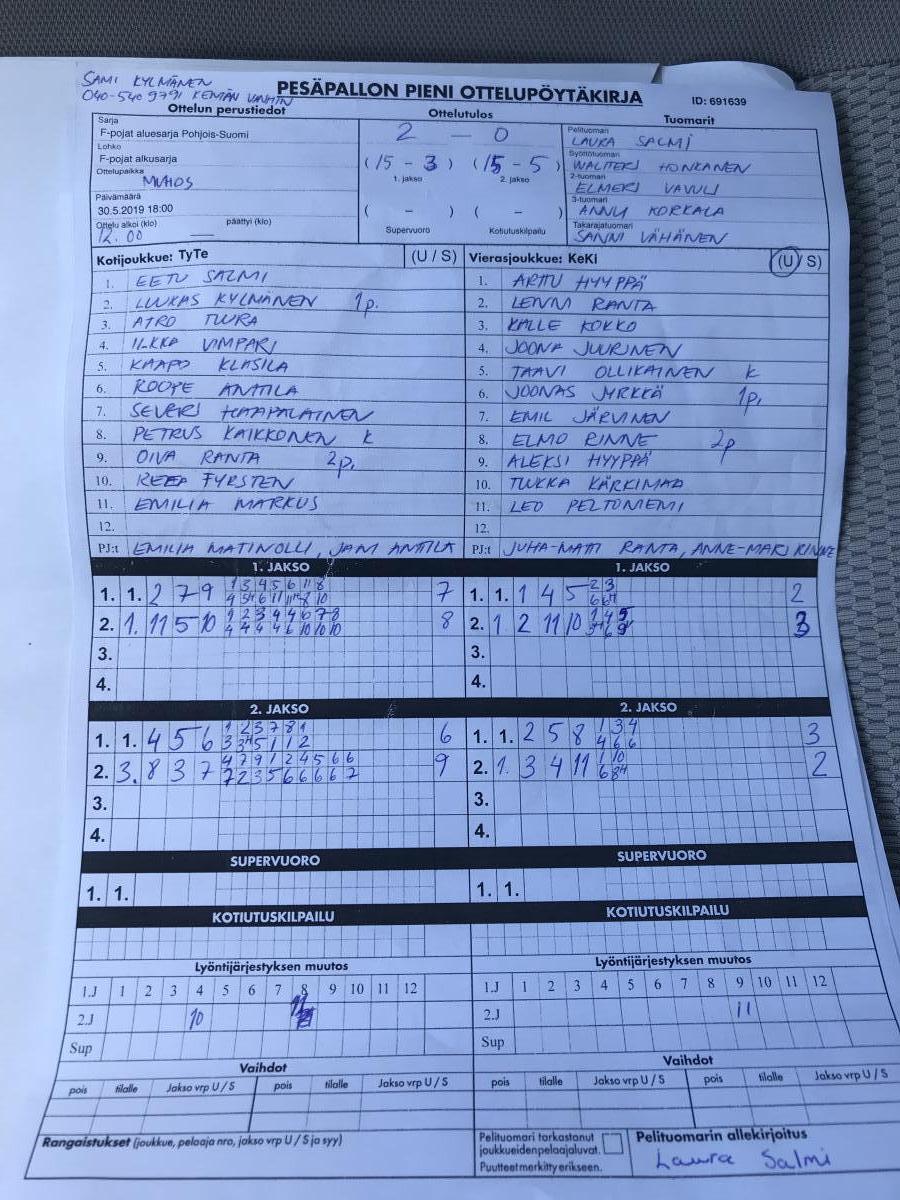 SAMI KYLMÄNEN
040-540 9791 KENTÄN VANHIN
PESÄPALLON PIENI OTTELUPÖYTÄKIRJA
ID: 691639
Ottelun perustiedot
Ottelutulos
Tuomarit
Sarja
F-pojat aluesarja Pohjois-Suomi
Lohko
F-pojat alkusarja
Ottelupaikka
MUHOS
Päivämäärä
30.5.2019 18:00
Ottelu alkoi (klo) päättyi (klo)
12.00
2 – 0
(15 – 3) (15 – 5)
1. jakso 2. jakso
( – ) ( – )
Supervuoro Kotiutuskilpailu
Pelituomari
LAURA SALMI
Syöttötuomari
WALTTERI HONKANEN
2-tuomari
ELMERI VAVULI
3-tuomari
ANNU KORKALA
Takarajatuomari
SANNI VÄHÄNEN
Kotijoukkue: TyTe (U / S)
1. EETU SALMI
2. LUUKAS KYLMÄNEN 1p.
3. ATRO TUURA
4. ILKKA VIMPARI
5. KAAPO KLASILA
6. ROOPE ANTTILA
7. SEVERI HAAPALAINEN
8. PETRUS KAIKKONEN K
9. OIVA RANTA 2p.
10. FYRSTEN
11. EMILIA MARKUS
12.
PJ:t EMILIA MATINOLLI, JANI ANTTILA
Vierasjoukkue: KeKi (U / S)
1. ARTTU HYYPPÄ
2. LENNI RANTA
3. KALLE KOKKO
4. JOONA JUURINEN
5. TAAVI OLLIKAINEN K
6. JOONAS JYRKKÄ 1p.
7. EMIL JÄRVINEN
8. ELMO RINNE 2p
9. ALEKSI HYYPPÄ
10. TUKKA KÄRKIMAA
11. LEO PELTONIEMI
12.
PJ:t JUHA-MATTI RANTA, ANNE-MARI RINNE
1. JAKSO
1. 1. 2 7 9 7
2. 1. 11 5 10 8
3.
4.
1. JAKSO
1. 1. 1 4 5 2
2. 1 2 11 10 3
3.
4.
2. JAKSO
1. 1. 4 5 6 6
2. 3. 8 3 7 9
3.
4.
2. JAKSO
1. 1. 2 5 8 3
2. 1. 3 4 11 2
3.
4.
SUPERVUORO
1. 1.
SUPERVUORO
1. 1.
KOTIUTUSKILPAILU
KOTIUTUSKILPAILU
Lyöntijärjestyksen muutos
1.J 1 2 3 4 5 6 7 8 9 10 11 12
2.J 10
Sup
Lyöntijärjestyksen muutos
1.J 1 2 3 4 5 6 7 8 9 10 11 12
2.J 11
Sup
Vaihdot
pois tilalle Jakso vrp U / S pois tilalle Jakso vrp U / S
Vaihdot
pois tilalle Jakso vrp U / S pois tilalle Jakso vrp U / S
Rangaistukset (joukkue, pelaaja nro, jakso vrp U / S ja syy)
Pelituomari tarkastanut
joukkueiden pelaajaluvat.
Puutteet merkitty erikseen.
Pelituomarin allekirjoitus
Laura Salmi